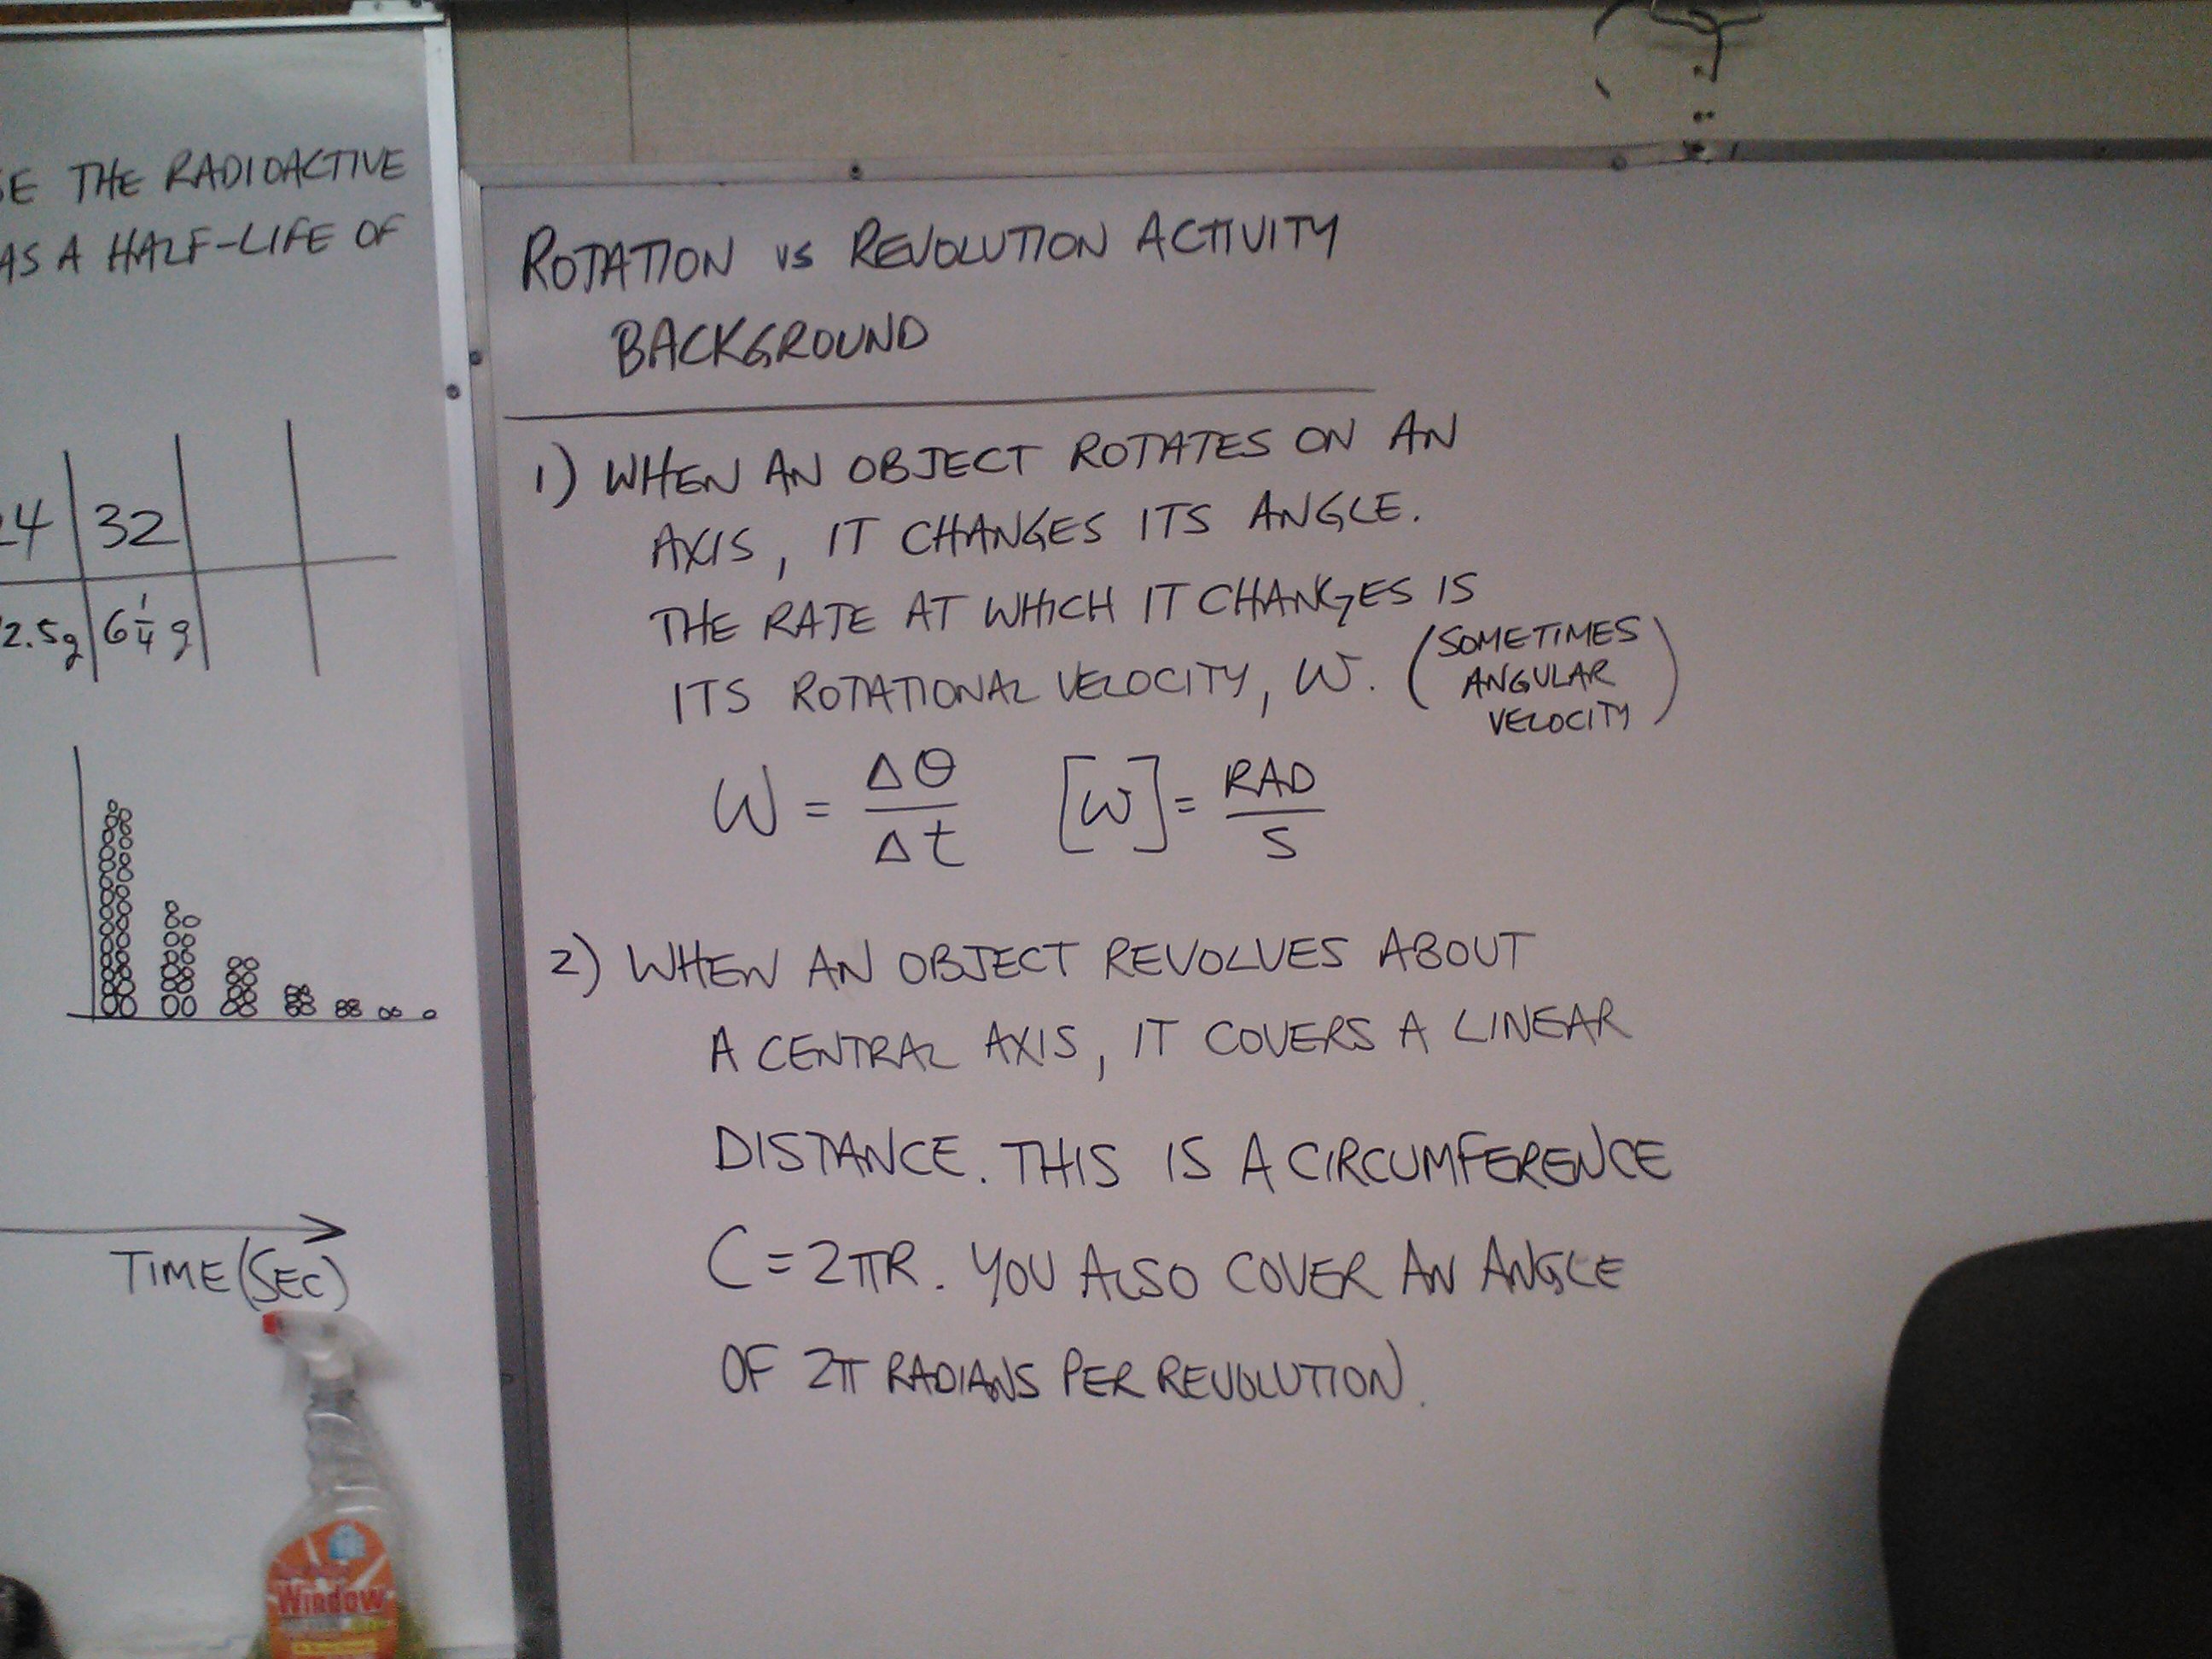 SE THE RADIOACTIVE
AS A HALF-LIFE OF
24 32
2.5g 6 1/4 g
TIME (SEC)
Window
ROTATION vs REVOLUTION ACTIVITY
BACKGROUND
1) WHEN AN OBJECT ROTATES ON AN
AXIS, IT CHANGES ITS ANGLE.
THE RATE AT WHICH IT CHANGES IS
ITS ROTATIONAL VELOCITY, ω. (SOMETIMES
ANGULAR
VELOCITY)
ω = Δθ/Δt [ω] = RAD/S
2) WHEN AN OBJECT REVOLVES ABOUT
A CENTRAL AXIS, IT COVERS A LINEAR
DISTANCE. THIS IS A CIRCUMFERENCE
C = 2πR. YOU ALSO COVER AN ANGLE
OF 2π RADIANS PER REVOLUTION.